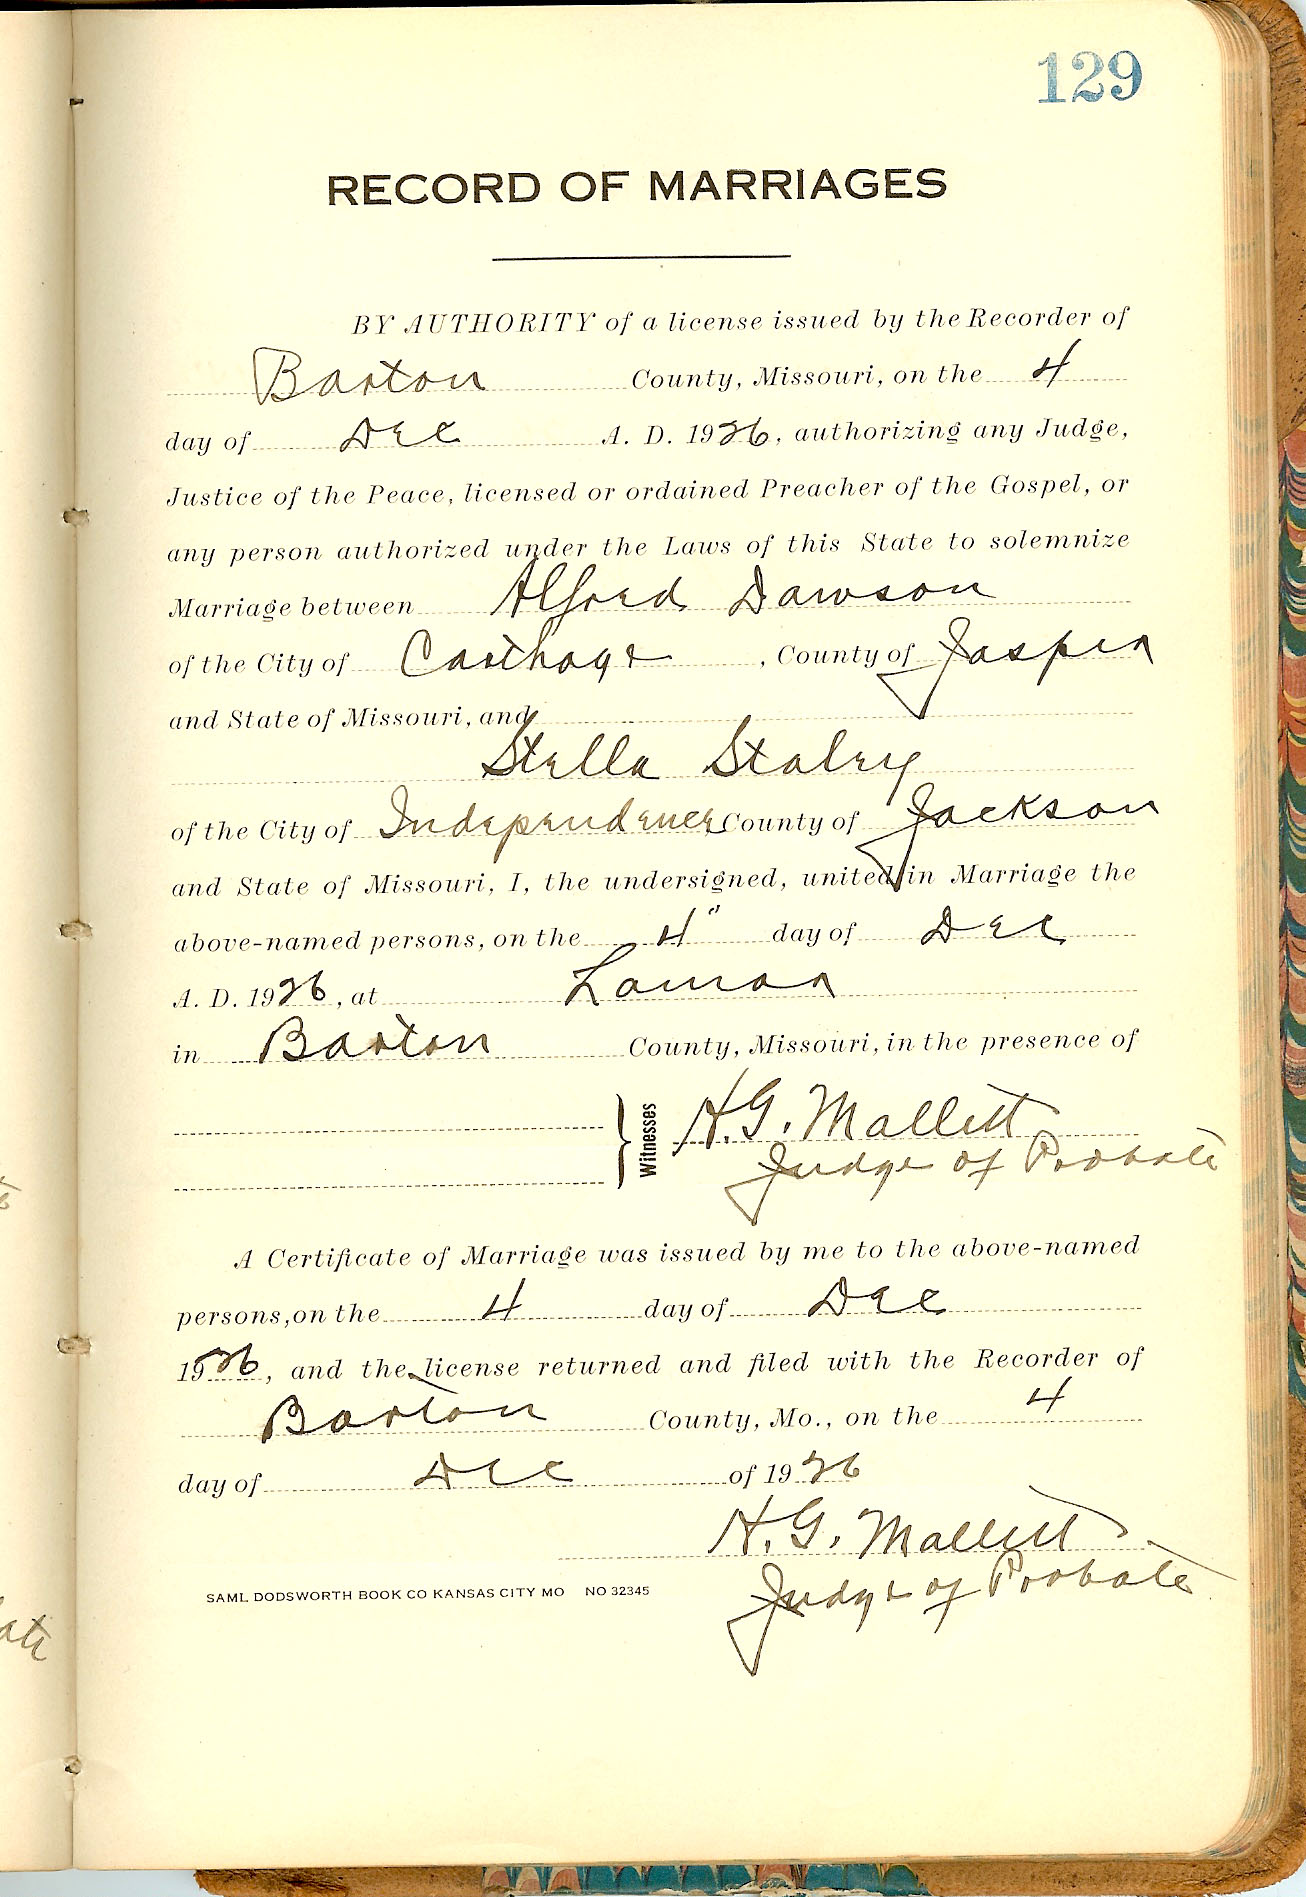 129
RECORD OF MARRIAGES
BY AUTHORITY of a license issued by the Recorder of
Barton County, Missouri, on the 4
day of Dec A. D. 1926, authorizing any Judge,
Justice of the Peace, licensed or ordained Preacher of the Gospel, or
any person authorized under the Laws of this State to solemnize
Marriage between Alford Dawson
of the City of Carthage, County of Jasper
and State of Missouri, and
Stella Staley
of the City of Independence County of Jackson
and State of Missouri, I, the undersigned, united in Marriage the
above-named persons, on the 4" day of Dec
A. D. 1926, at Lamar
in Barton County, Missouri, in the presence of
Witnesses H. G. Mallett
Judge of Probate
A Certificate of Marriage was issued by me to the above-named
persons, on the 4 day of Dec
1926, and the license returned and filed with the Recorder of
Barton County, Mo., on the 4
day of Dec of 1926
H. G. Mallett
Judge of Probate
SAML DODSWORTH BOOK CO KANSAS CITY MO NO 32345